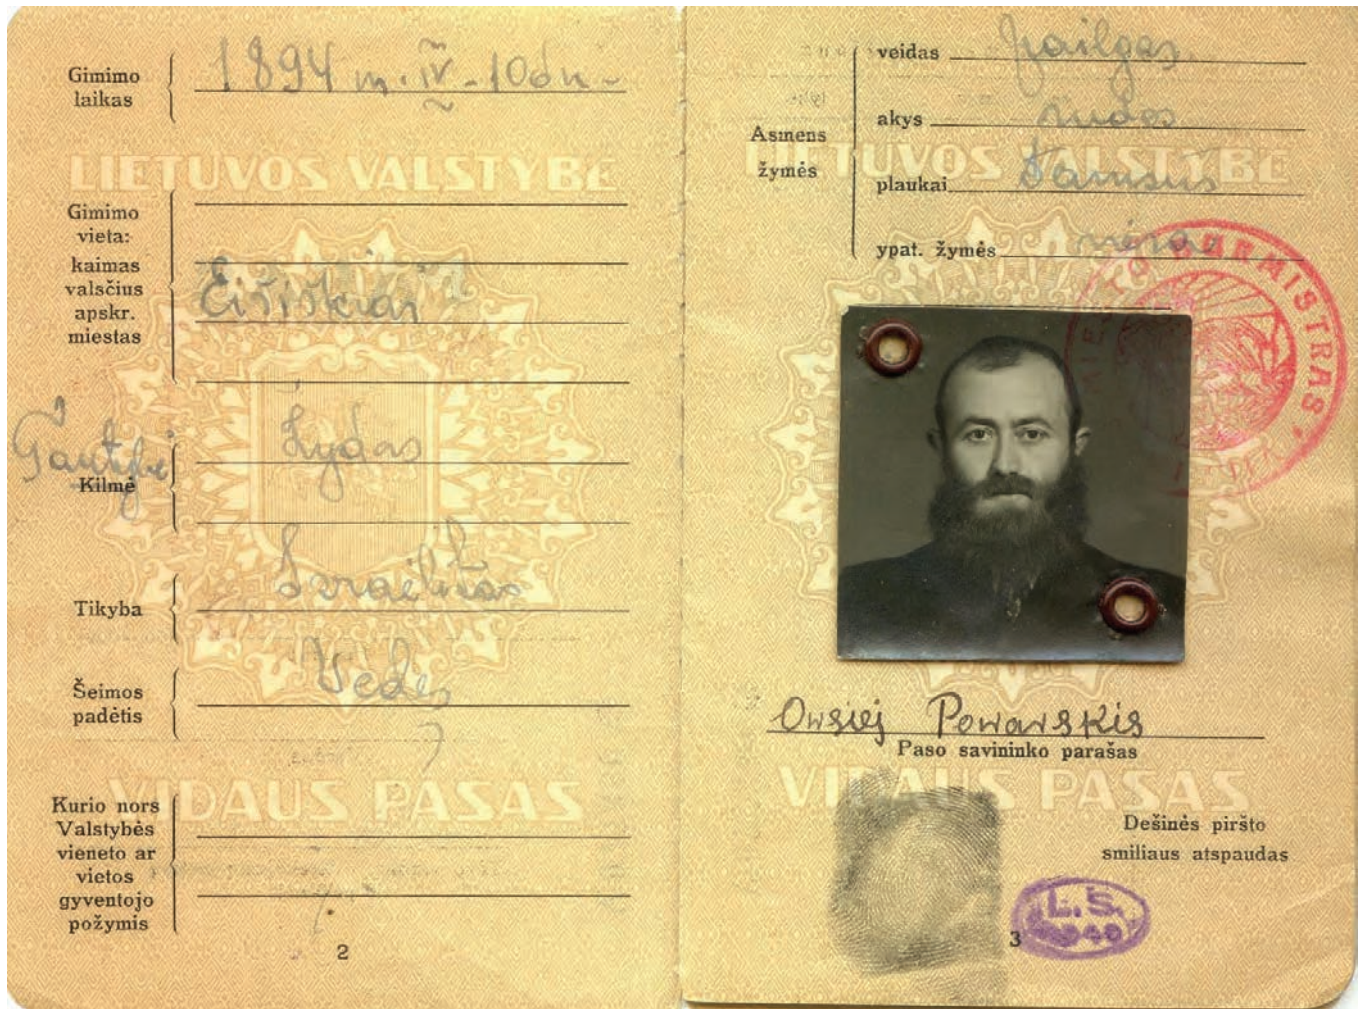 Gimimo laikas 1894 m. IV - 10 dn -
LIETUVOS VALSTYBĖ
Gimimo vieta:
kaimas
valsčius
apskr.
miestas
Eišiškiai
Tautybė
Kilmė
Žydas
Tikyba
Izraelitas
Šeimos padėtis
Vedęs
VIDAUS PASAS
Kurio nors
Valstybės
vieneto ar
vietos
gyventojo
požymis
2
Asmens žymės
veidas pailgas
akys rudos
plaukai Tamsūs
ypat. žymės nėra
LIETUVOS VALSTYBĖ
BURMISTRAS
Owsiej Powarskis
Paso savininko parašas
VIDAUS PASAS
Dešinės piršto
smiliaus atspaudas
L.S.
1940
3